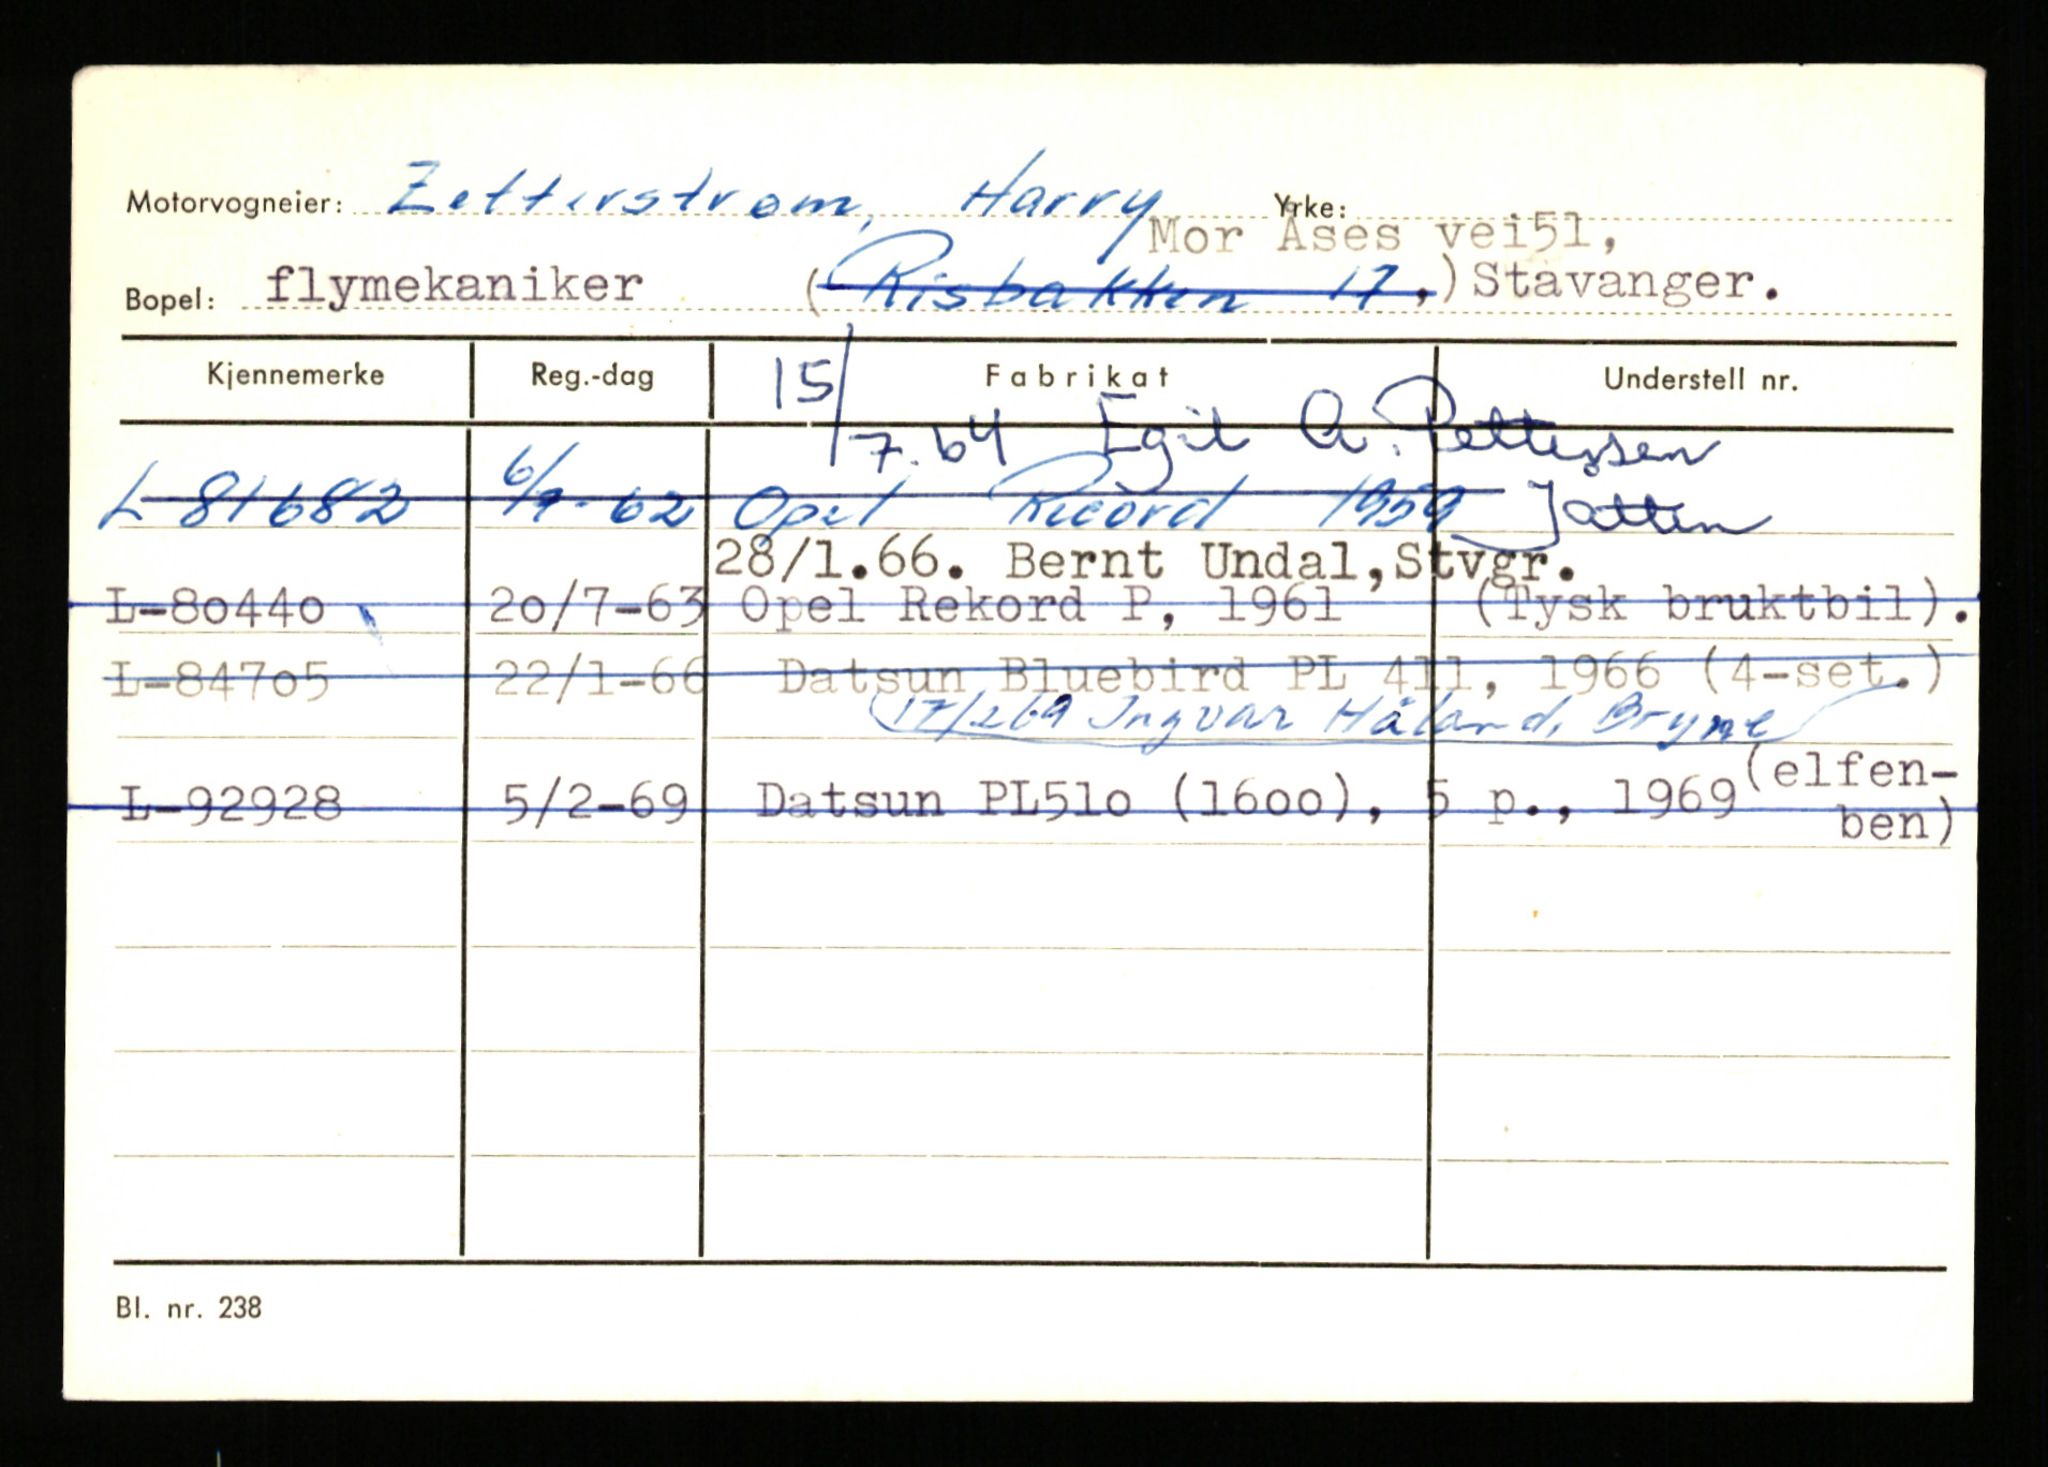 Motorvogneier: Zetterstrøm, Harry Yrke:
Mor Åses vei51,
Bopel: flymekaniker (Risbakken 17,) Stavanger.
Kjennemerke Reg.-dag Fabrikat Understell nr.
15/7.64 Egil A. Pettersen
L-81682 6/9-62 Opel Record 1959 Jåtten
28/1.66. Bernt Undal, Stvgr.
L-80440 20/7-63 Opel Rekord P, 1961 (Tysk bruktbil).
L-84705 22/1-66 Datsun Bluebird PL 411, 1966 (4-set.)
17/2 69 Ingvar Håland, Bryne
(elfen-
L-92928 5/2-69 Datsun PL510 (1600), 5 p., 1969
ben)
Bl. nr. 238